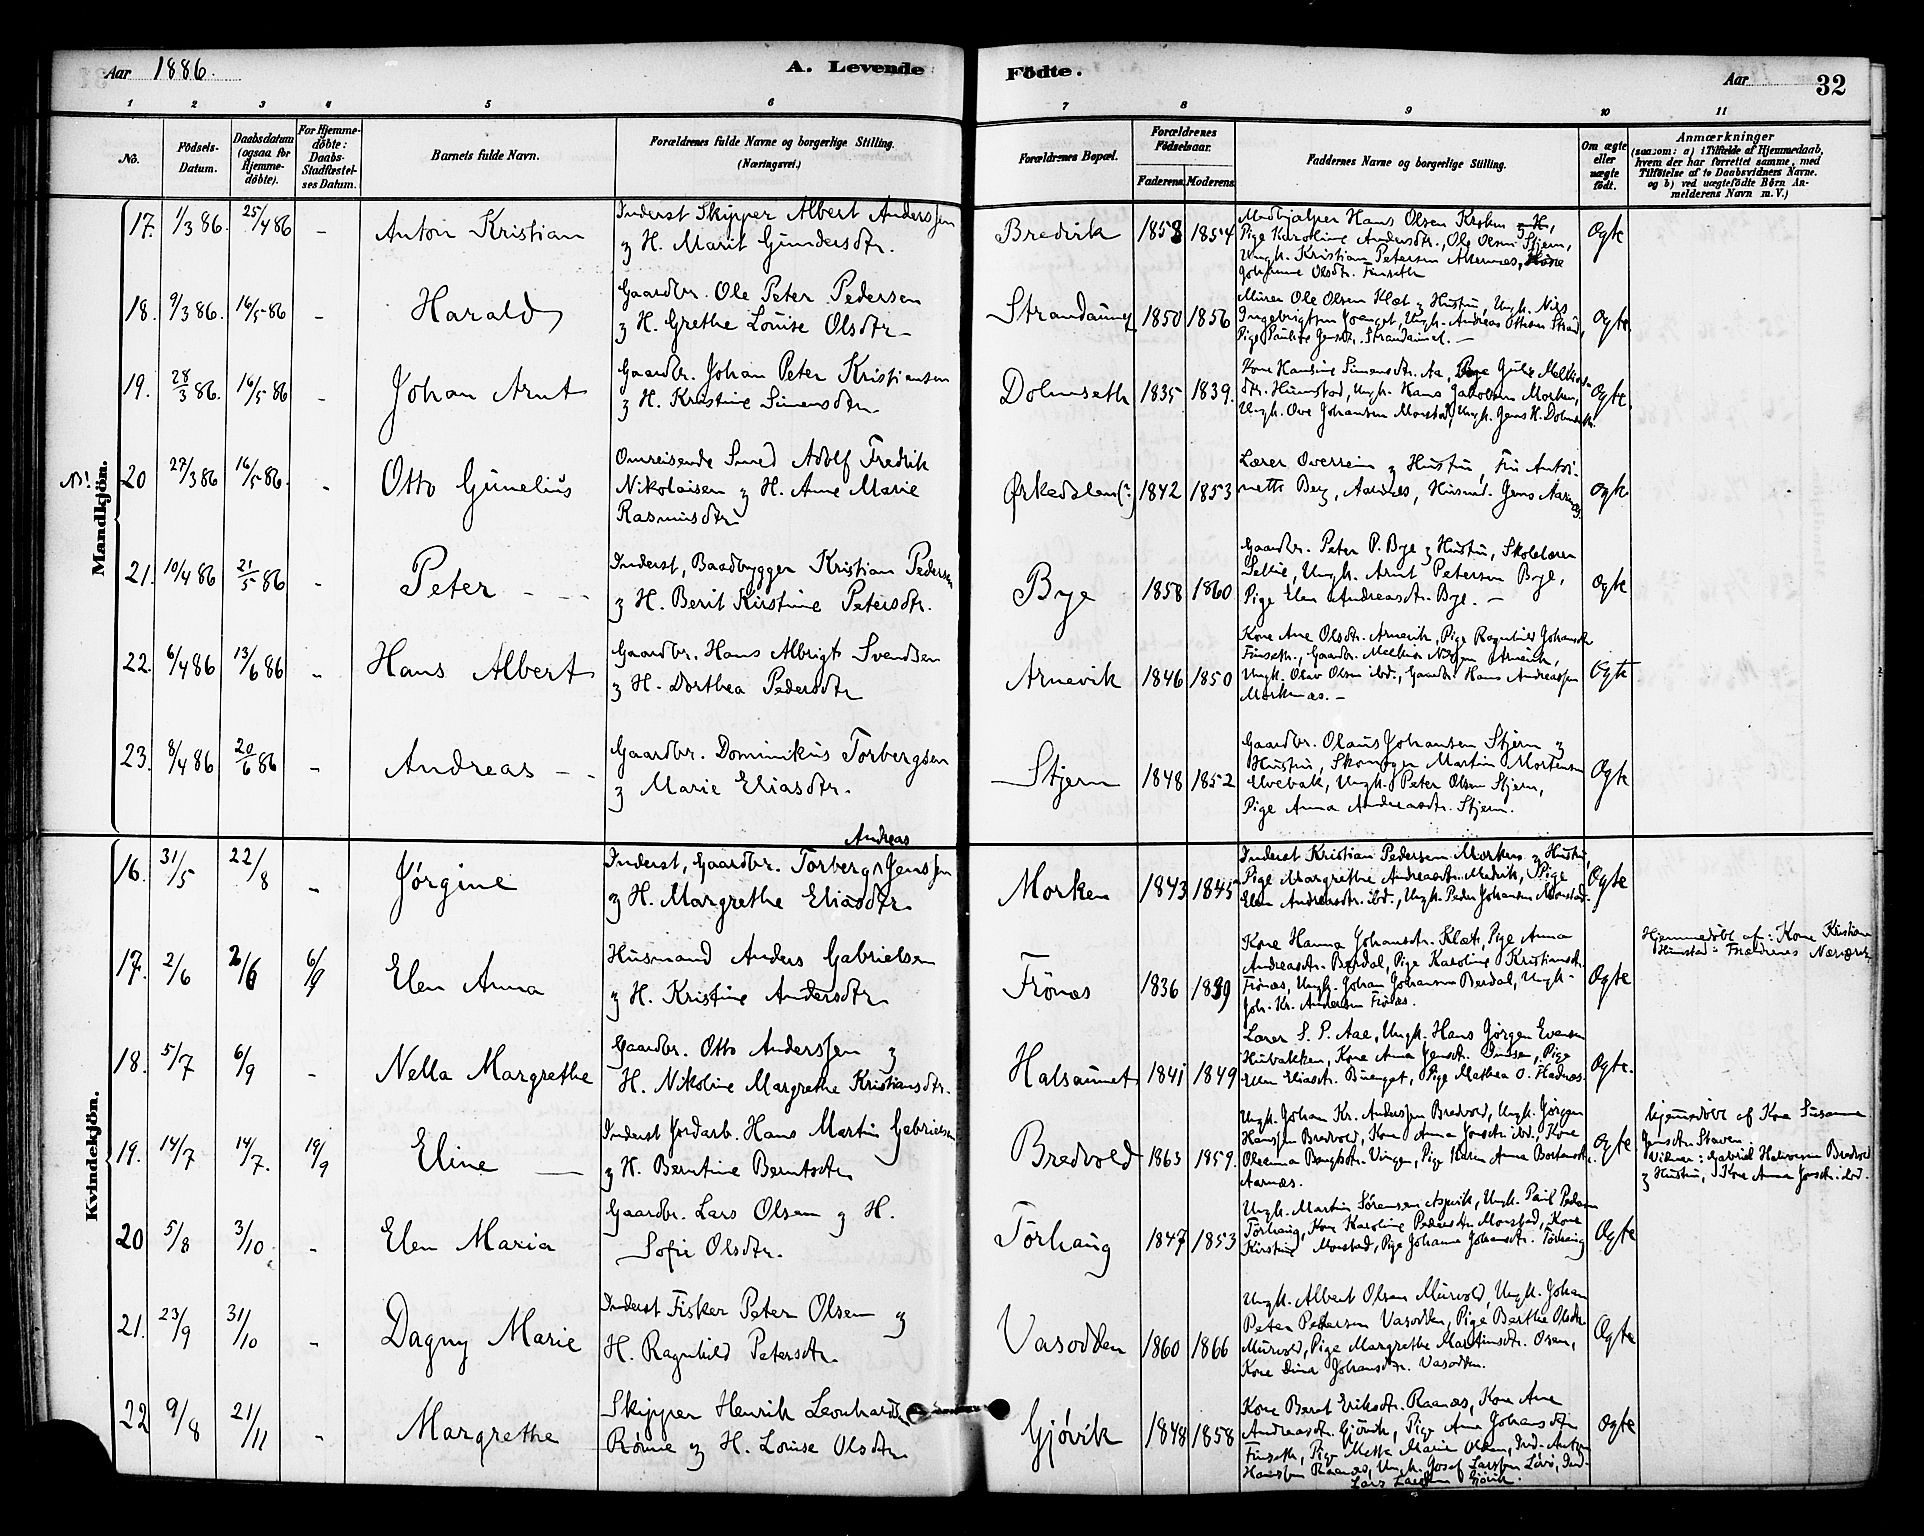 Aar 1886.
A. Levende
Födte.
Aar
32
1 2 3 4 5 6 7 8 9 10 11
No.
Födsels-
Datum.
Daabsdatum
(ogsaa for
Hjemme-
döbte).
For Hjemme-
döbte:
Daabs-
Stadfæstel-
ses Datum.
Barnets fulde Navn.
Forældrenes fulde Navne og borgerlige Stilling.
(Næringsvei.)
Forældrenes Bopæl.
Forældrenes
Födselsaar.
Faderens. Moderens.
Faddernes Navne og borgerlige Stilling.
Om ægte
eller
uægte
födt.
Anmærkninger
(saasom: a) i Tilfælde af Hjemmedaab,
hvem der har forrettet samme, med
Tilföielse af to Daabsvidners Navne.
og b) ved uægtefödte Börn An-
melderens Navn m. V.)
Mandkjön.
17. 1/3 86. 25/4 86 - Anton Kristian
Inderst Skipper Albert Anderssen
og H. Marit Gundersdtr.
Bredvik 1858 1854
Medhjælper Hans Olsen
Pige Karoline Andersdtr., Ole Olsen Stjern,
Ungk. Kristian Petersen
Johanne Olsdtr. Finseth
Ægte
18. 9/3 86. 16/5 86 - Harald
Gaardbr. Ole Peter Pedersen
og H. Grethe Louise Olsdtr
Strandaunet 1850 1856
Murer Ole Olsen Klæt og Hustru, Ungk. Nils
Ingebrigtsen Ungk. Andreas Ottesen Strand,
Pige Pauline Jensdtr. Strandaunet.
Ægte
19. 28/3 86. 16/5 86 - Johan Arnt
Gaardbr. Johan Peter Kristiansen
og H. Kristine Simensdtr
Dolmseth 1835 1839.
Kone Hansine Simensdtr. Aa,
Ungk. Hans Jakobsen Morken,
Ungk. Ove Johansen Monstad, Ungk. Jens H. Dolmseth
Ægte.
20 27/3 86 16/5 86. - Otto Gunelius
Omreisende Smed Adolf Fredrik
Nikolaisen og H. Anne Marie
Rasmusdtr
Ørkedalen(?) 1842 1853
Lærer Overrein og Hustru, Fru Antoi-
nette Berg, Aarnes, Husmd. Jens Aarnes.
Ægte
21. 10/4 86 21/5 86 - Peter
Inderst, Baadbygger Kristian Pedersen
og H. Berit Kirstine Petersdtr.
Bye 1858 1860
Gaardbr. Peter P. Bye og Hustru, Skolelærer
Ungk. Arnt Petersen Bye,
Pige Elen Andreasdtr. Bye.
Ægte
22. 6/4 86 13/6 86 - Hans Albert
Gaardbr. Hans Albrigt Svendsen
og H. Dorthea Pedersdtr
Arnevik 1846 1850
Kone Ane Olsdtr. Arnevik, Pige Ragnhild Johansdtr
Finseth, Gaardbr. Melkior Arnevik,
Ungk. Olav Olsen ibd., Gaardbr. Hans Andreassen
Morknæs.
Ægte
23. 8/4 86 20/6 86 - Andreas
Gaardbr. Dominikus Torbergsen
og Marie Eliasdtr.
Stjern 1848 1852
Gaardbr. Olaus Johansen Stjern og
Hustru, Skomager Martin Mortensen
Elvebak, Ungk. Peter Olsen Stjern,
Pige Anna Andreasdtr. Stjern.
Ægte
Kvindekjön.
16. 31/5 22/8 - Jørgine
Andreas
Inderst, Gaardbr. Torberg Jenssen
og H. Margrethe Eliasdtr
Morken 1843 1845
Inderst Kristian Pedersen Morken og Hustru,
Pige Margrethe Andreasdtr. Pige
Elen Andreasdtr. ibd., Ungk. Peder Johansen Monstad.
Ægte
17. 2/6 2/6 6/9 Elen Anna
Husmand Anders Gabrielsen
og H. Kristine Andersdtr
Frönæs 1836 1839
Kone Hanna Johansdtr. Klæt, Pige Anna
Andreasdtr. Berdal, Pige Karoline Kristiansdtr.
Frönæs, Ungk. Johan Johansen Berdal, Ungk.
Joh. Kr. Andersen Frönæs.
Ægte
Hjemmedöbt af: Kone Kristiane
Humstad i Forældrenes Nærværelse
18. 5/7 6/9 - Nella Margrethe
Gaardbr. Otto Anderssen og
H. Nikoline Margrethe Kristiansdtr.
Halsaunet 1841 1849
Lærer S. P. Aae, Ungk. Hans Jørgen Evensen
Hubakken, Kone Anna Jensdtr. Pige
Ellen Eliasdtr. Buenget, Pige Mathea O. Hadnæs.
Ægte.
19. 14/7 14/7. 19/9 Eline
Inderst Jordarb. Hans Martin Gabrielsen
og H. Berntine Berntsdtr
Bredvold 1863 1859.
Ungk. Johan Kr. Anderssen Bredvold, Ungk. Jørgen
Hanssen Bredvold, Kone Anna Jonsdtr ibd., Kone
Oleanna Vingen, Pige Karen Anna
Aarnæs.
Ægte
hjemmedöbt af Kone Susanna
Jensdtr. Staven
Vidner: Gabriel Halvorsen Bredvold
og Hustru, Kone Anna Jonsdtr. ibd.
20 5/8 3/10 - Elen Maria
Gaardbr. Lars Olsen og H.
Sofie Olsdtr.
Torhaug 1847 1853
Ungk. Martin Sörensen Aspvik, Ungk. Paul Pedersen
Torhaug, Kone Karoline Pedersdtr. Monstad, Kone
Kirstine Monstad, Pige Johanna Johansdtr. Torhaug
Ægte
21. 23/9 31/10 - Dagny Marie
Inderst Fisker Peter Olsen og
H. Ragnhild Petersdtr.
Vasodden 1860 1866
Ungk. Albert Olsen Murvold, Ungk. Johan
Peter Petersen Vasodden, Pige Berthe Olsdtr
Murvold, Pige Margrethe Martinsdtr. Osen,
Kone Dina Johansdtr. Vasodden.
Ægte
22 9/8 21/11 - Margrethe
Skipper Henrik Leonhard
Rönne og H. Louise Olsdtr
Gjövik 1848 1858
Kone Beret Eriksdtr. Raanæs, Kone Ane
Andreasdtr. Gjövik, Pige Ane Johansdtr
Finseth, Pige Mette Marie Olsen, Ind. Anton
Hanssen Raanæs, Ungk. Josef Larssen Ind.
Lars Larssen Gjövik.
Ægte